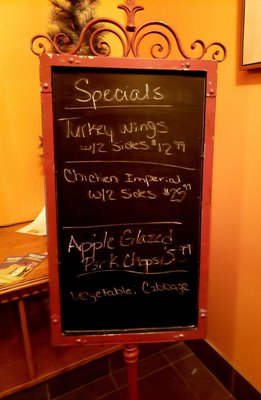 Specials
Turkey Wings
w/2 Sides $12.99
Chicken Imperial
w/2 Sides $25.99
Apple Glazed
Pork Chops
Vegetable: Cabbage